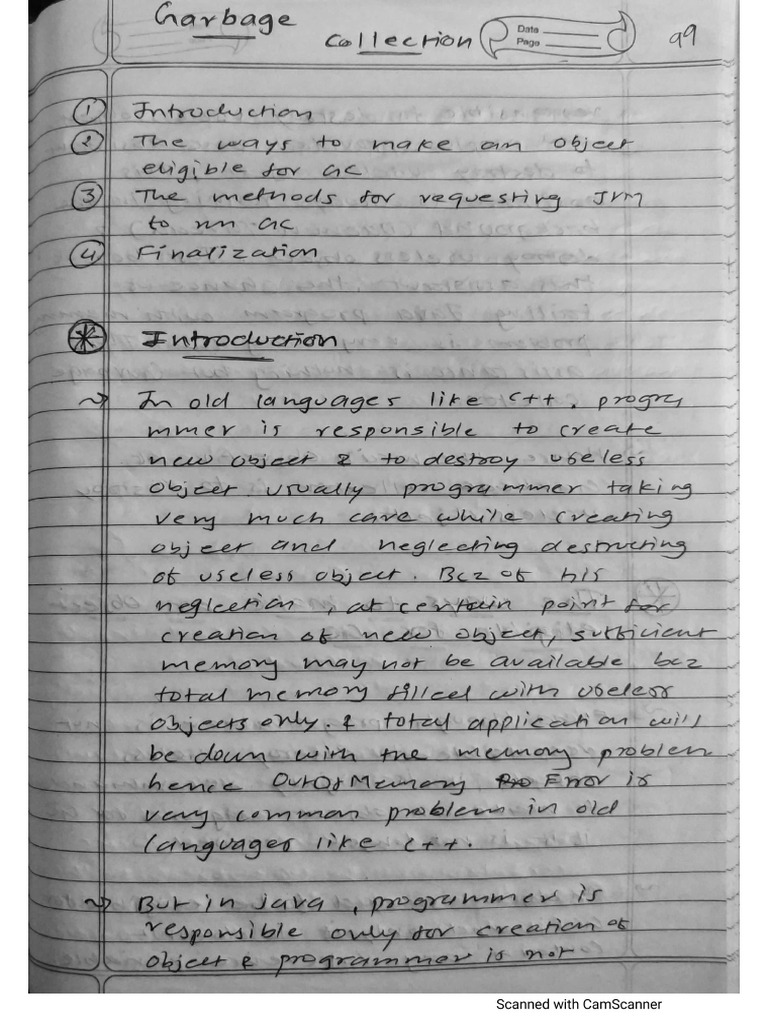 Garbage
Collection
Date
Page
99
① Introduction
② The ways to make an object
eligible for GC
③ The methods for requesting JVM
to run GC
④ Finalization
Introduction
In old languages like C++, progra
mmer is responsible to create
new object & to destroy useless
object. usually programmer taking
very much care while creating
object and neglecting destructing
of useless object. Bcz of his
neglection, at certain point for
creation of new object, sufficient
memory may not be available bcz
total memory filled with useless
objects only. & total application will
be down with the memory problem
hence OutOfMemory Error is
very common problem in old
languages like C++.
But in java, programmer is
responsible only for creation of
object & programmer is not
Scanned with CamScanner